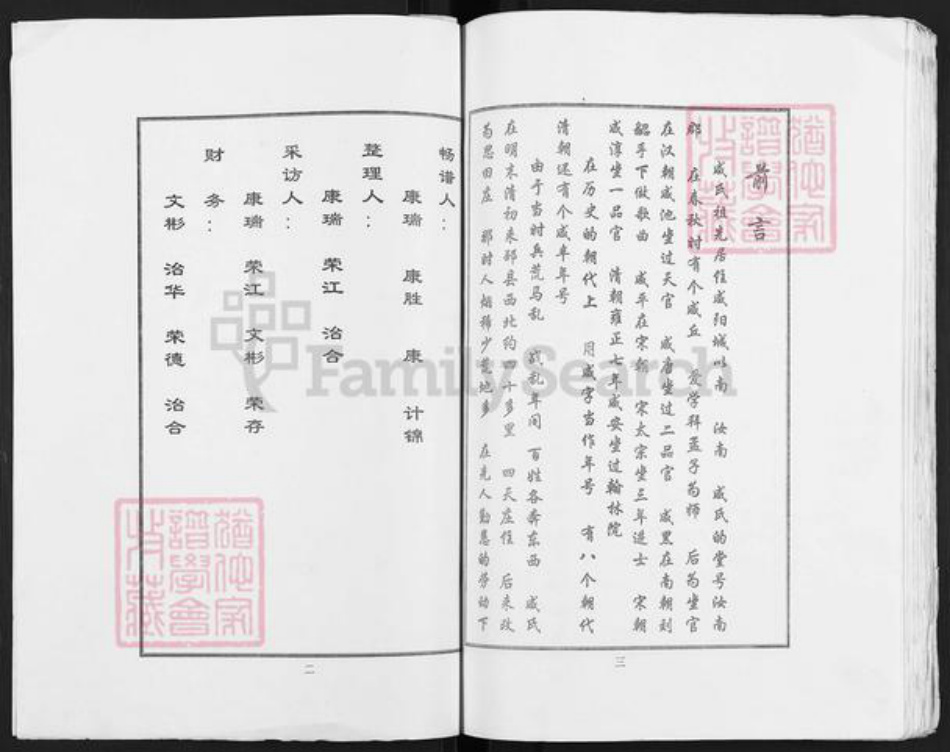 前言
咸氏祖先居住咸阳城以南 汝南 咸氏的堂号汝南
郡 在春秋时有个咸丘 爱学拜孟子为师 后为坐官
在汉朝咸池坐过天官 咸唐坐过二品官 咸黑在南朝刘
韶手下做歌曲 咸平在宋朝 宋太宗坐三年进士 宋朝
咸淳坐一品官 清朝雍正七年咸安坐过翰林院
在历史的朝代上 用咸字当作年号 有八个朝代
清朝还有个咸丰年号
由于当时兵荒马乱 战乱年间 百姓各奔东西 咸氏
在明末清初来邳县西北约四十多里 四天庄住 后来改
为思田庄 那时人烟稀少荒地多 在先人勤恳的劳动下
三
畅谱人：
康瑞 康胜 康 计锦
整理人：
康瑞 荣江 治合
采访人：
康瑞 荣江 文彬 荣存
财务：
文彬 治华 荣德 治合
二
猶他家譜學會收藏
猶他家譜學會收藏
FamilySearch